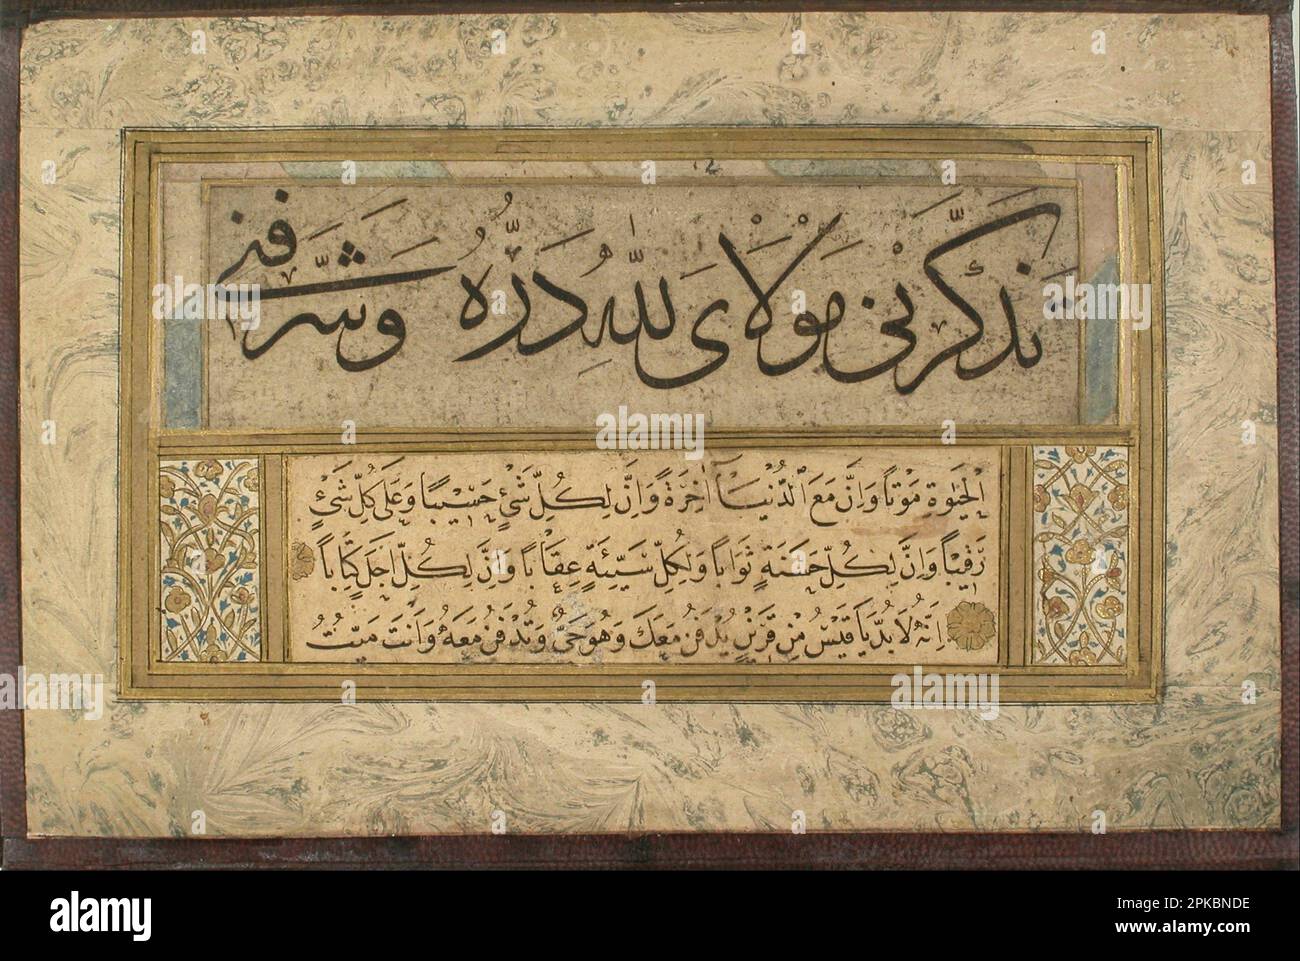 تَذَكَّرَنِي مَوْلَايَ لِلّٰهِ دَرُّهُ وَشَرَّفَنِي
الْحَيٰوةِ مَوْتًا وَاِنَّ مَعَ الدُّنْيَا اٰخِرَةً وَاِنَّ لِكُلِّ شَيْءٍ حَسِيْبًا وَعَلَى كُلِّ شَيْءٍ
رَقِيْبًا وَاِنَّ لِكُلِّ حَسَنَةٍ ثَوَابًا وَلِكُلِّ سَيِّئَةٍ عِقَابًا وَاِنَّ لِكُلِّ اَجَلٍ كِتَابًا
اِنَّهُ لَابُدَّ يَا قَيْسُ مِنْ قَرِيْنٍ يُدْفَنُ مَعَكَ وَهُوَ حَيٌّ وَتُدْفَنُ مَعَهُ وَاَنْتَ مَيِّتٌ
alamy
Image ID: 2PKBNDE
www.alamy.com